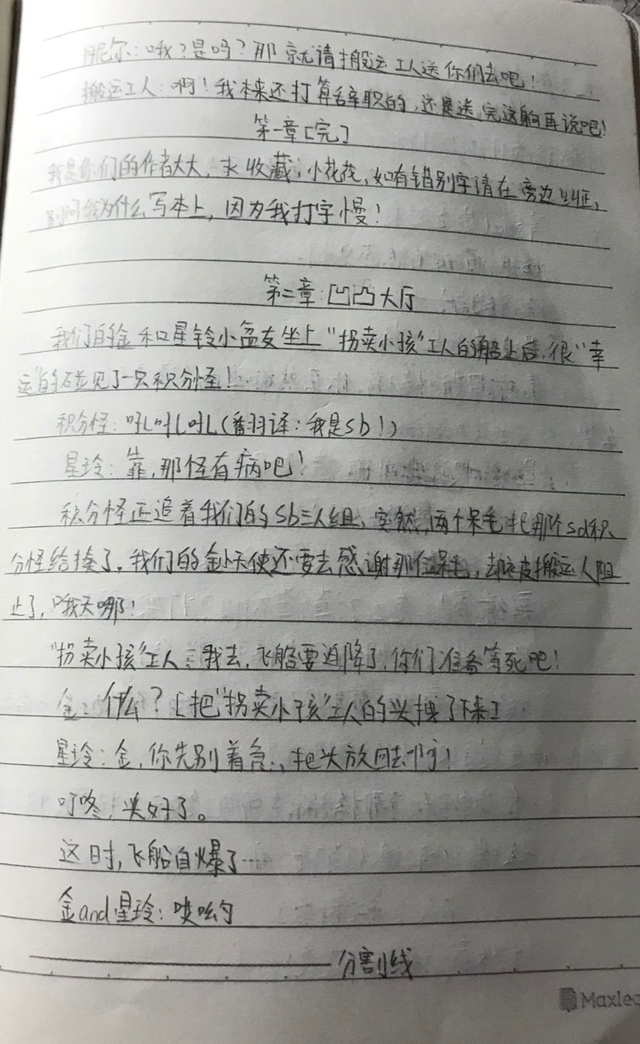 尼尔：哦？是吗？那就请搬运工人送你们去吧！
搬运工人：啊！我本来还打算辞职的，还是送完这趟再说吧！
第一章[完]
我是你们的作者大大，求收藏，小花花，如有错别字请在旁边纠正，
别问我为什么写本上，因为我打字慢！
第二章：凹凸大厅
我们的金和星铃小盆友坐上“拐卖小孩”工人的船上后，很“幸
运”的碰见了一只积分怪！
积分怪：吼吼吼（翻译：我是sb！）
星玲：靠，那怪有病吧！
积分怪正追着我们的sb三人组，突然，两个呆毛把那个sd积
分怪给揍了，我们的金小天使还要去感谢那位呆毛，却被搬运人阻
止了，哦天哪！
“拐卖小孩”工人：我去，飞船要迫降了，你们准备等死吧！
金：什么？[把“拐卖小孩”工人的头拽了下来]
星玲：金，你先别着急，把头放回去啊！
叮咚，头好了。
这时，飞船自爆了…
金and星玲：哎哟
分割线
Maxleo